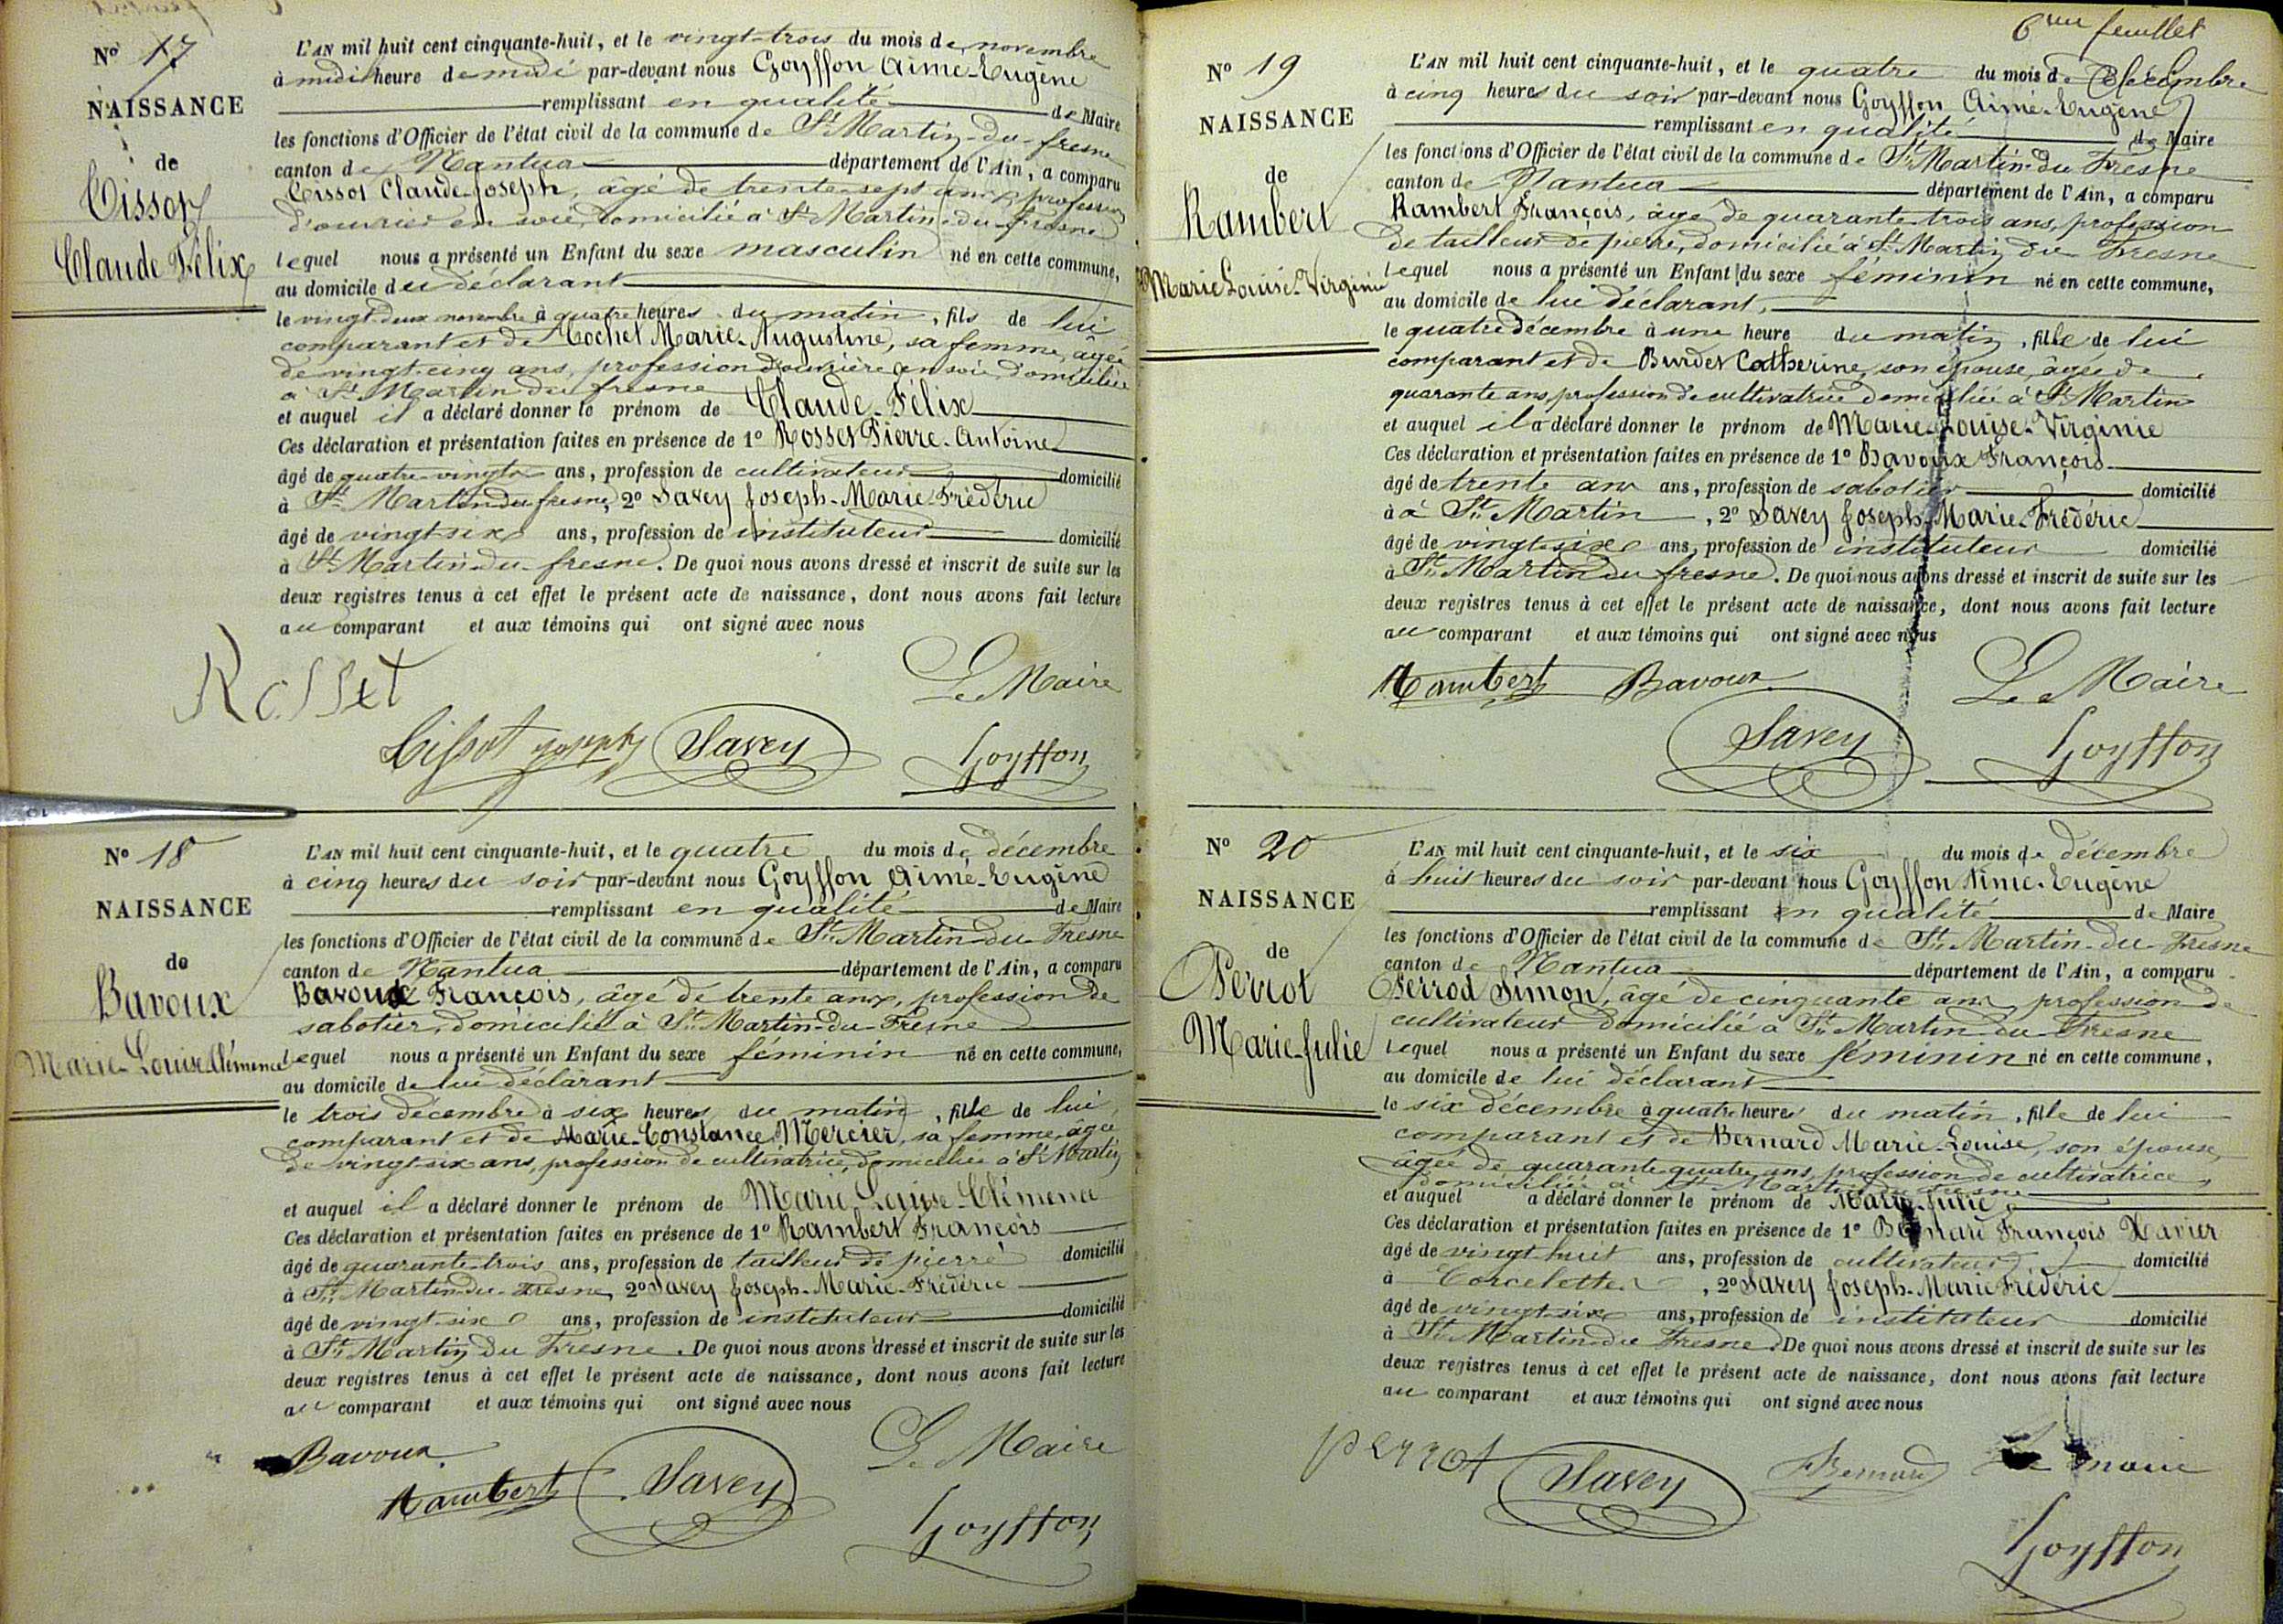 Nº 17
NAISSANCE
de
Cissot
Claude Félix
L'AN mil huit cent cinquante-huit, et le vingt-trois du mois de novembre
à midi heure de midi par-devant nous Goyffon Aimé-Eugène
remplissant en qualité de Maire
les fonctions d'Officier de l'état civil de la commune de St Martin-du-fresne
canton de Nantua département de l'Ain, a comparu
Cissot Claude-Joseph, âgé de trente-sept ans, profession
d'ouvrier en soie, domicilié à St Martin-du-fresne
lequel nous a présenté un Enfant du sexe masculin né en cette commune,
au domicile du déclarant
le vingt-deux novembre à quatre heures du matin, fils de lui
comparant et de Cochet Marie-Augustine, sa femme, âgée
de vingt-cinq ans, profession d'ouvrière en soie, domiciliée
à St Martin du fresne
et auquel il a déclaré donner le prénom de Claude-Félix
Ces déclaration et présentation faites en présence de 1º Rosset Pierre-Antoine
âgé de quatre-vingts ans, profession de cultivateur domicilié
à St Martin du fresne, 2º Savey Joseph-Marie-Frédéric
âgé de vingt-six ans, profession de instituteur domicilié
à St Martin-du-fresne. De quoi nous avons dressé et inscrit de suite sur les
deux registres tenus à cet effet le présent acte de naissance, dont nous avons fait lecture
au comparant et aux témoins qui ont signé avec nous
Rosset
Le Maire
Cissot joseph Savey Goyffon
Nº 18
NAISSANCE
de
Bavoux
Marie-Louise Clémence
L'AN mil huit cent cinquante-huit, et le quatre du mois de décembre
à cinq heures du soir par-devant nous Goyffon Aimé-Eugène
remplissant en qualité de Maire
les fonctions d'Officier de l'état civil de la commune de St Martin-du-Fresne
canton de Nantua département de l'Ain, a comparu
Bavoux François, âgé de trente ans, profession de
sabotier, domicilié à St Martin-du-Fresne
lequel nous a présenté un Enfant du sexe féminin né en cette commune,
au domicile de lui déclarant
le trois décembre à six heures du matin, fille de lui
comparant et de Marie-Constance Mercier, sa femme, âgée
de vingt-six ans, profession de cultivatrice, domiciliée à St Martin
et auquel il a déclaré donner le prénom de Marie Louise-Clémence
Ces déclaration et présentation faites en présence de 1º Rambert François
âgé de quarante-trois ans, profession de tailleur de pierre domicilié
à St Martin-du-Fresne, 2º Savey Joseph-Marie-Frédéric
âgé de vingt-six ans, profession de instituteur domicilié
à St Martin du Fresne. De quoi nous avons dressé et inscrit de suite sur les
deux registres tenus à cet effet le présent acte de naissance, dont nous avons fait lecture
au comparant et aux témoins qui ont signé avec nous
Bavoux Le Maire
Rambert Savey Goyffon
6me feuillet
Nº 19
NAISSANCE
de
Rambert
Marie Louise-Virginie
L'AN mil huit cent cinquante-huit, et le quatre du mois de décembre
à cinq heures du soir par-devant nous Goyffon Aimé-Eugène
remplissant en qualité de Maire
les fonctions d'Officier de l'état civil de la commune de St Martin-du Fresne
canton de Nantua département de l'Ain, a comparu
Rambert François, âgé de quarante-trois ans, profession
de tailleur de pierre, domicilié à St Martin du Fresne
lequel nous a présenté un Enfant du sexe féminin né en cette commune,
au domicile de lui déclarant,
le quatre décembre à une heure du matin, fille de lui
comparant et de Burdet Catherine, son épouse, âgée de
quarante ans, profession de cultivatrice domiciliée à St Martin
et auquel il a déclaré donner le prénom de Marie-Louise-Virginie
Ces déclaration et présentation faites en présence de 1º Bavoux François
âgé de trente ans ans, profession de sabotier domicilié
à à St Martin, 2º Savey Joseph-Marie-Frédéric
âgé de vingt-six ans, profession de instituteur domicilié
à St Martin du fresne. De quoi nous avons dressé et inscrit de suite sur les
deux registres tenus à cet effet le présent acte de naissance, dont nous avons fait lecture
au comparant et aux témoins qui ont signé avec nous
Rambert Bavoux Le Maire
Savey Goyffon
Nº 20
NAISSANCE
de
Perrot
Marie-Julie
L'AN mil huit cent cinquante-huit, et le six du mois de décembre
à huit heures du soir par-devant nous Goyffon Aimé-Eugène
remplissant en qualité de Maire
les fonctions d'Officier de l'état civil de la commune de St Martin-du-Fresne
canton de Nantua département de l'Ain, a comparu
Perrod Simon, âgé de cinquante ans, profession de
cultivateur domiciliè à St Martin du Fresne
lequel nous a présenté un Enfant du sexe féminin né en cette commune,
au domicile de lui déclarant
le six décembre à quatre heures du matin, fille de lui
comparant et de Bernard Marie-Louise, son épouse,
âgée de quarante-quatre ans, profession de cultivatrice,
domiciliée à St Martin du Fresne
et auquel a déclaré donner le prénom de Marie-Julie
Ces déclaration et présentation faites en présence de 1º Bernard François Xavier
âgé de vingt-huit ans, profession de cultivateur domicilié
à Corcelette, 2º Savey Joseph-Marie Frédéric
âgé de vingt-six ans, profession de instituteur domicilié
à St Martin-du Fresne. De quoi nous avons dressé et inscrit de suite sur les
deux registres tenus à cet effet le présent acte de naissance, dont nous avons fait lecture
au comparant et aux témoins qui ont signé avec nous
perrot Savey Bernard Le maire
Goyffon